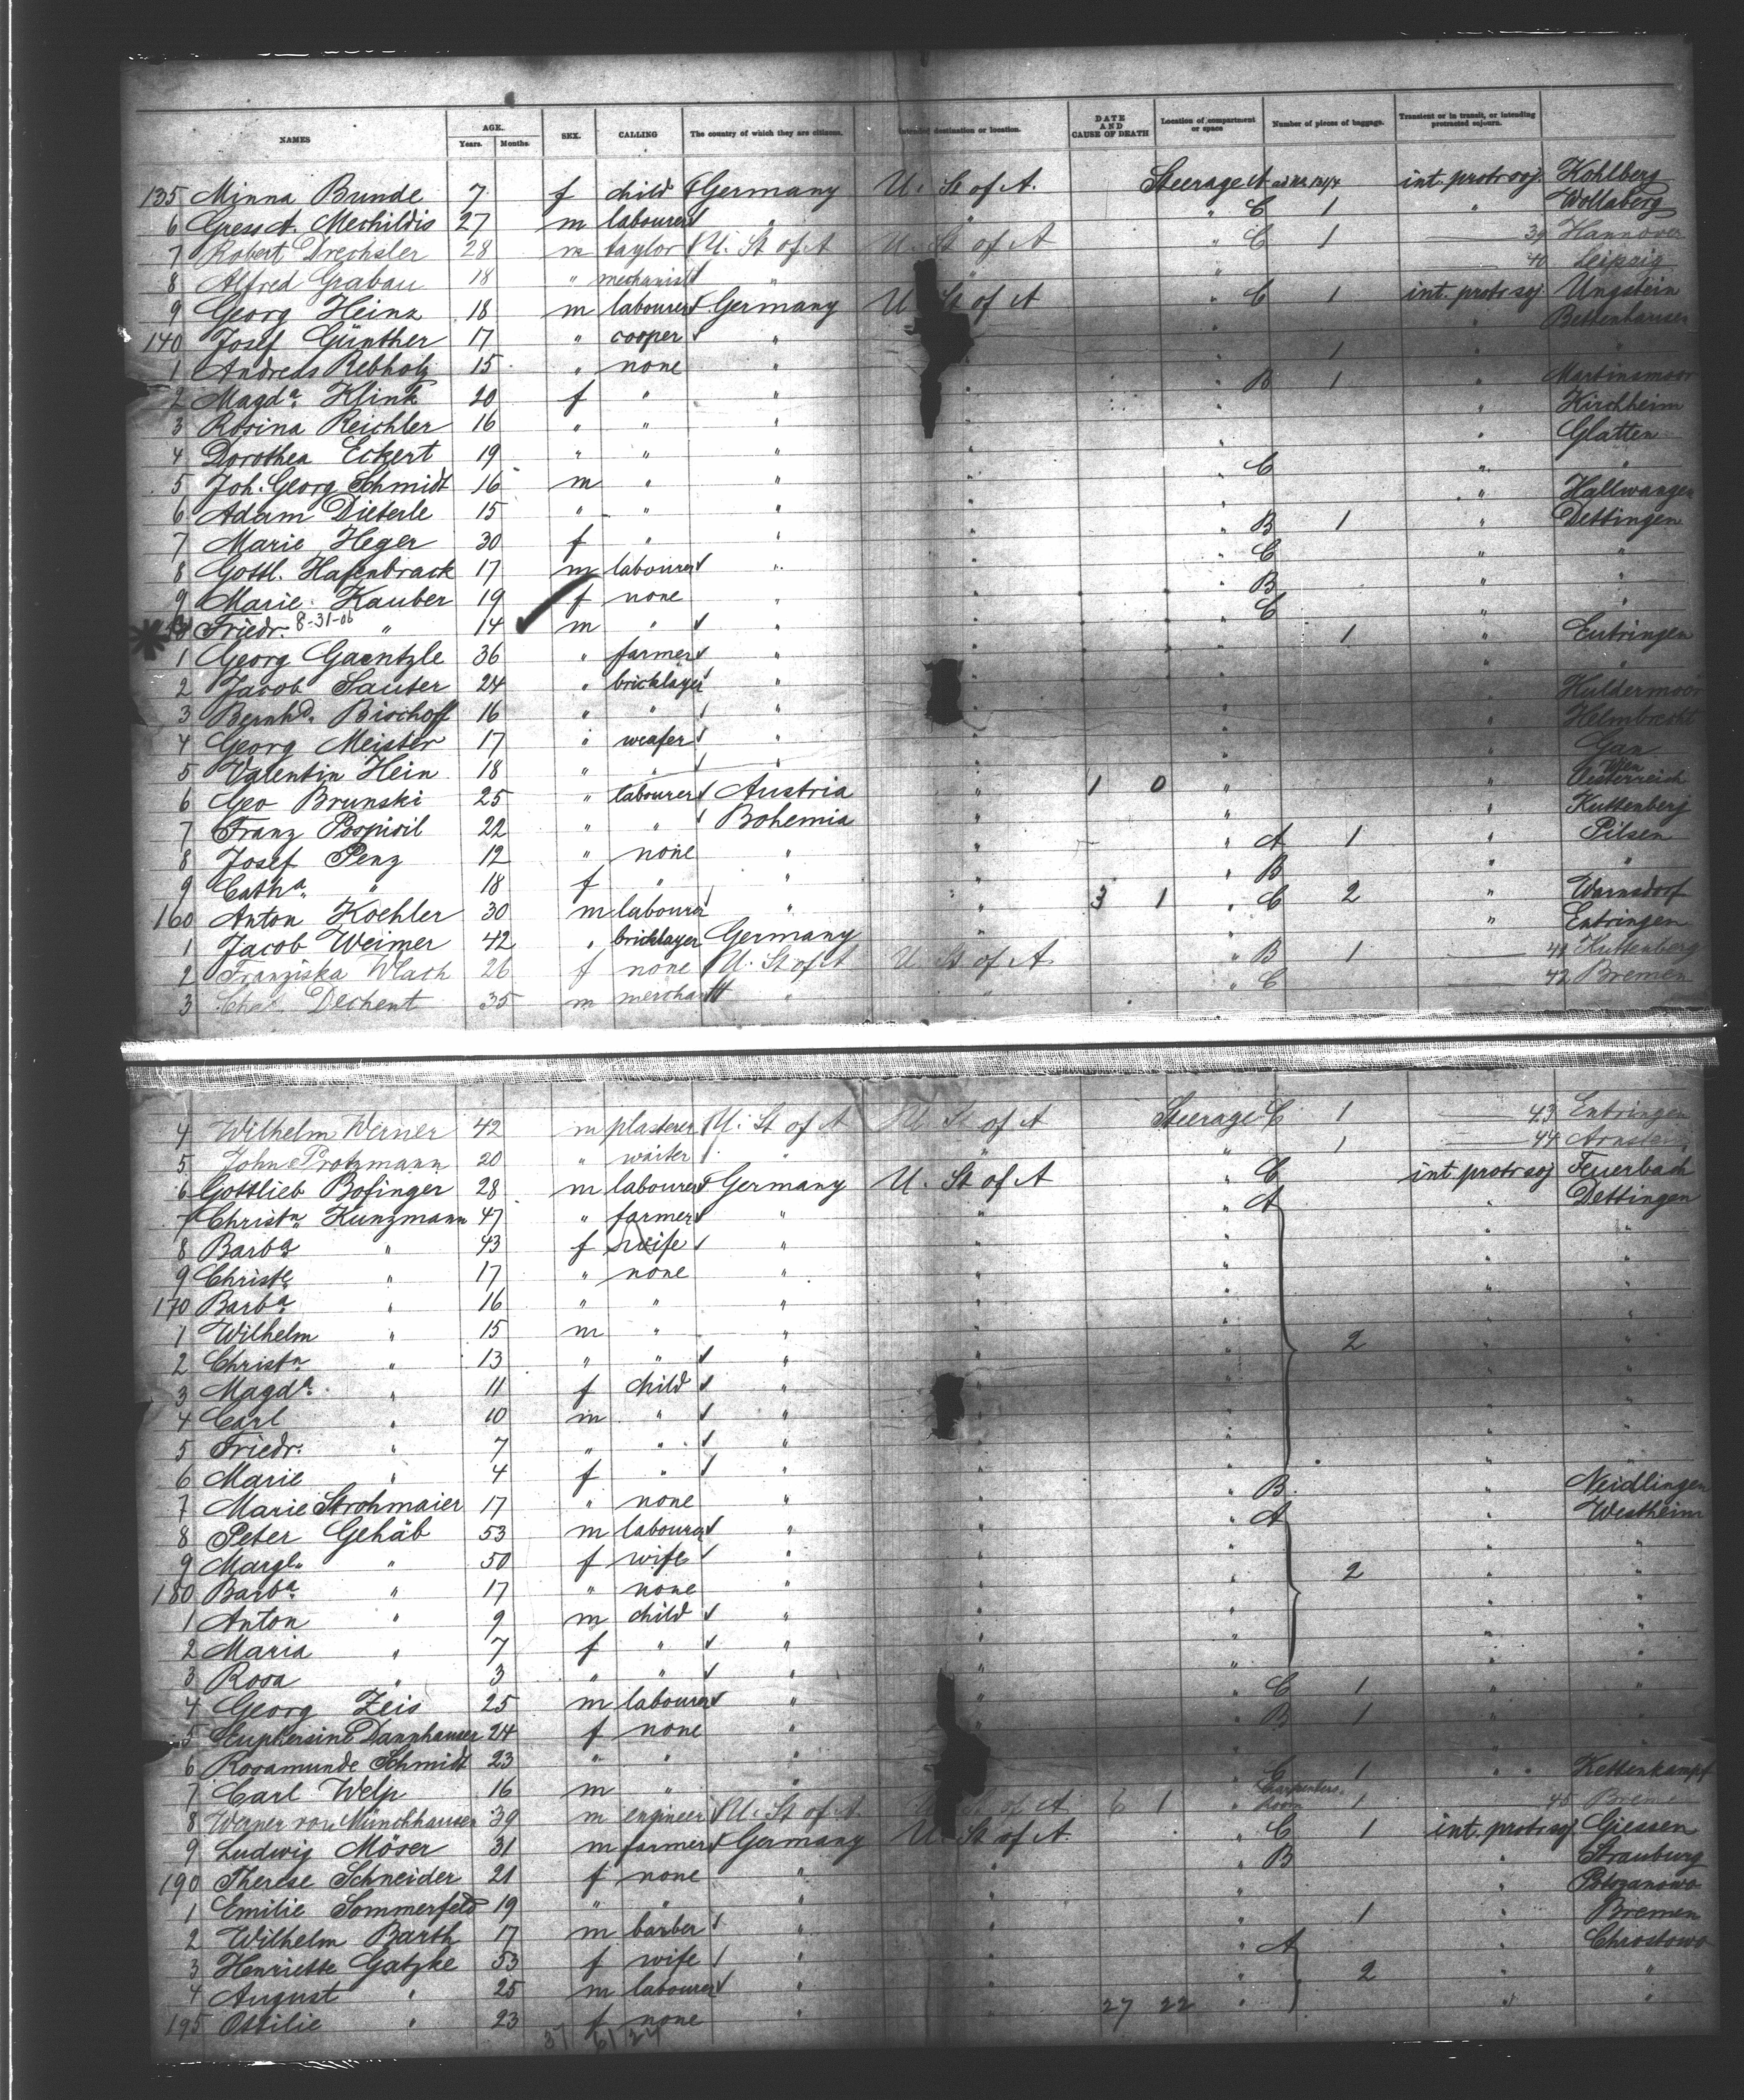 NAMES AGE. Years. Months. SEX. CALLING The country of which they are citizens. Intended destination or location. DATE AND CAUSE OF DEATH Location of compartment or space Number of pieces of baggage. Transient or in transit, or intending protracted sojourn.
135 Minna Bunde 7 f child Germany U. St of A. Steerage A int. protr soj. Kohlberg
6 Mechildis 27 m labourer " " " C 1 " Wollaberg
7 Robert Drechsler 28 m taylor U. St of A U. St of A " C 1 39 Hannover
8 Alfred Grabau 18 " mechanist " " " 40 Leipzig
9 Georg Heinz 18 m labourer Germany U. St of A " C 1 int. protr soj. Ungstein
140 Josef Günther 17 " cooper " " " " Bettenhausen
1 Andreas Rebholz 15 " none " " " 1 " "
2 Magda. Klink 20 f " " " " B 1 " Martinsmoor
3 Rosina Reichler 16 " " " " " " Kirchheim
4 Dorothea Eckert 19 " " " " " " Glatten
5 Joh. Georg Schmidt 16 m " " " " C " "
6 Adam Dieterle 15 " " " " " " Hallwangen
7 Marie Heger 30 f " " " " B 1 " Dettingen
8 Gottl. Hafenbrack 17 m labourer " " " C " "
9 Marie Kauber 19 f none " " " B " "
Friedr. 8-31-06 " 14 m " " " " C " "
1 Georg Gaentzle 36 " farmer " " " 1 " Entringen
2 Jacob Sauter 24 " bricklayer " " " " "
3 Bernhd. Bischoff 16 " " " " " " Huldermoor
4 Georg Meister 17 " weafer " " " " Helmbrecht
5 Valentin Hein 18 " " " " " " Gan
6 Geo Brunski 25 " labourer Austria " 1 0 " " Oesterreich
7 Franz Pospisil 22 " " Bohemia " " " Kuttenberg
8 Josef Penz 12 " none " " " A 1 " Pilsen
9 Catha. " 18 f " " " " B " "
160 Anton Koehler 30 m labourer " " 3 1 " C 2 " Warnsdorf
1 Jacob Weimer 42 " bricklayer Germany " " " Entringen
2 Franziska Wlach 26 f none U. St of A U. St of A " B 1 41 Kuttenberg
3 Dechent 35 m merchant " " " C 42 Bremen
4 Wilhelm Werner 42 m plasterer U. St of A U. St of A Steerage C 1 43 Entringen
5 John Protzmann 20 " waiter " " " 1 44 Arnstein
6 Gottlieb Bofinger 28 m labourer Germany U. St of A " C int. protr soj Feuerbach
7 Christn. Kunzmann 47 " farmer " " " A " Dettingen
8 Barba " 43 f wife " " " " "
9 Christe. " 17 " none " " " " "
170 Barba. " 16 " " " " " " "
1 Wilhelm " 15 m " " " " 2 " "
2 Christn. " 13 " " " " " " "
3 Magda. " 11 f child " " " " "
4 Carl " 10 m " " " " " "
5 Friedr. " 7 " " " " " " "
6 Marie " 4 f " " " " " "
7 Marie Strohmaier 17 " none " " " B " Neidlingen
8 Peter Gehäb 53 m labourer " " " A " Westheim
9 Margl. " 50 f wife " " " " "
180 Barba. " 17 " none " " " 2 " "
1 Anton " 9 m child " " " " "
2 Maria " 7 f " " " " " "
3 Rosa " 3 " " " " " " "
4 Georg Zeis 25 m labourer " " " C 1 " "
5 Euphersine Dannhauser 24 f none " " " B 1 " "
6 Rosamunde Schmidt 23 " " " " "
7 Carl Welp 16 m " " " C 1 " Kettenkampf
8 Werner von Münchhausen 39 m engineer U. St of A U. St of A 6 1 " Carpenters Room 1 45 Breme
9 Ludwig Möser 31 m farmer Germany U. St of A " C 1 int. protr soj. Giessen
190 Therese Schneider 21 f none " " " B " Strauburg
1 Emilie Sommerfeld 19 " " " " " "
2 Wilhelm Barth 17 m barber " " " 1 " Bremen
3 Henriette Gatzke 53 f wife " " " A " Chrostowo
4 August " 25 m labourer " " " 2 " "
195 Ottilie " 23 f none " " 27 22 " " "
37 61 24